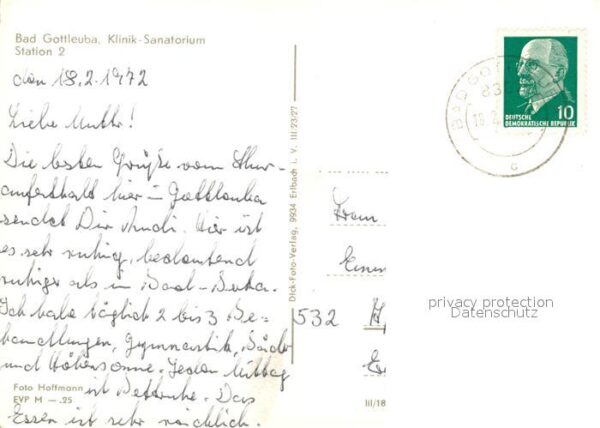 Bad Gottleuba, Klinik-Sanatorium
Station 2
den 18.2.1972
Liebe Mutti!
Die besten Grüße vom Kur-
aufenthalt hier in Gottleuba
sendet Dir Rudi. Hier ist
es sehr ruhig, bedeutend
ruhiger als in Bad-
Ich habe täglich 2 bis 3 Be-
handlungen, Gymnastik, Bäder
und Höhensonne. Jeden Mittag
ist Bettruhe. Das
Essen ist sehr reichlich.
Foto Hoffmann
EVP M —.25
Dick-Foto-Verlag, 9934 Erlbach i. V. III/23/27
III/18
BAD GOTT
8302
18.2.
c
10
DEUTSCHE
DEMOKRATISCHE REPUBLIK
Frau
532
privacy protection
Datenschutz